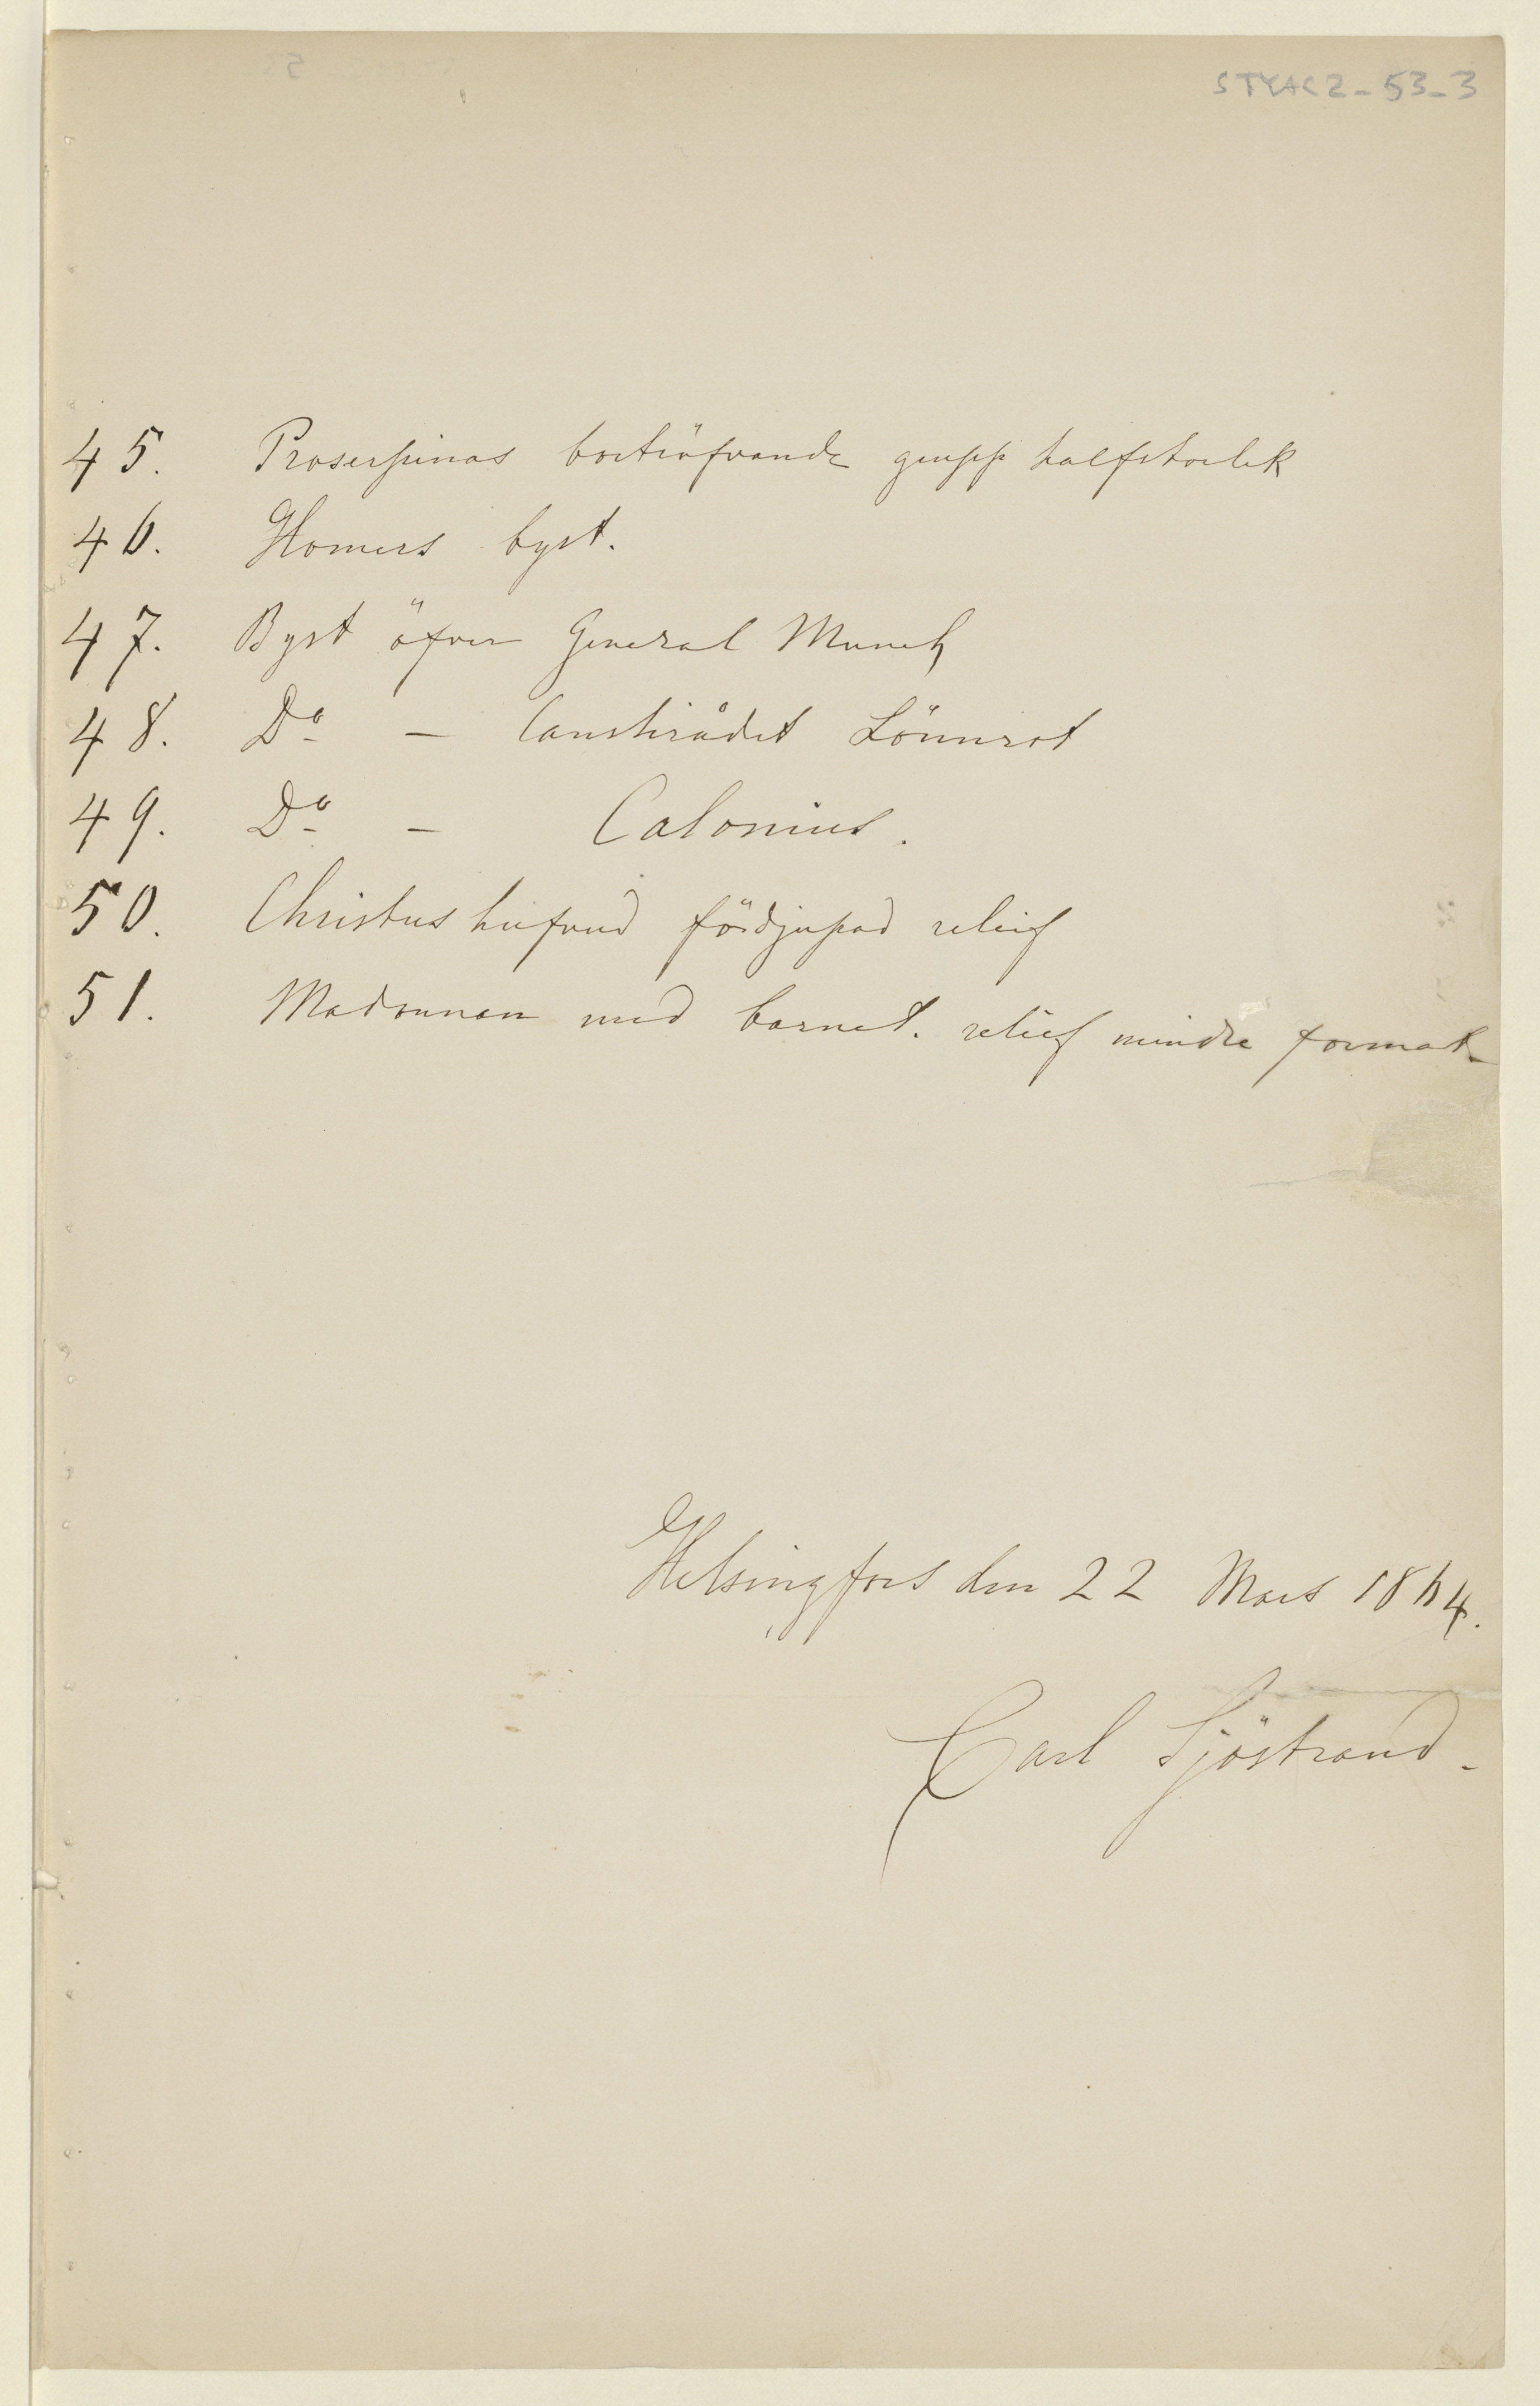 STYAC2-53-3
45. Proserpinas bortröfvande grupp halfstorlek
46. Homers byst.
47. Byst öfver General Munck
48. Do — Canslirådet Lönnrot
49. Do — Calonius.
50. Christus hufvud fördjupad relief
51. Madonnan med barnet. relief mindre format
Helsingfors den 22 Mars 1864.
Carl Sjöstrand.